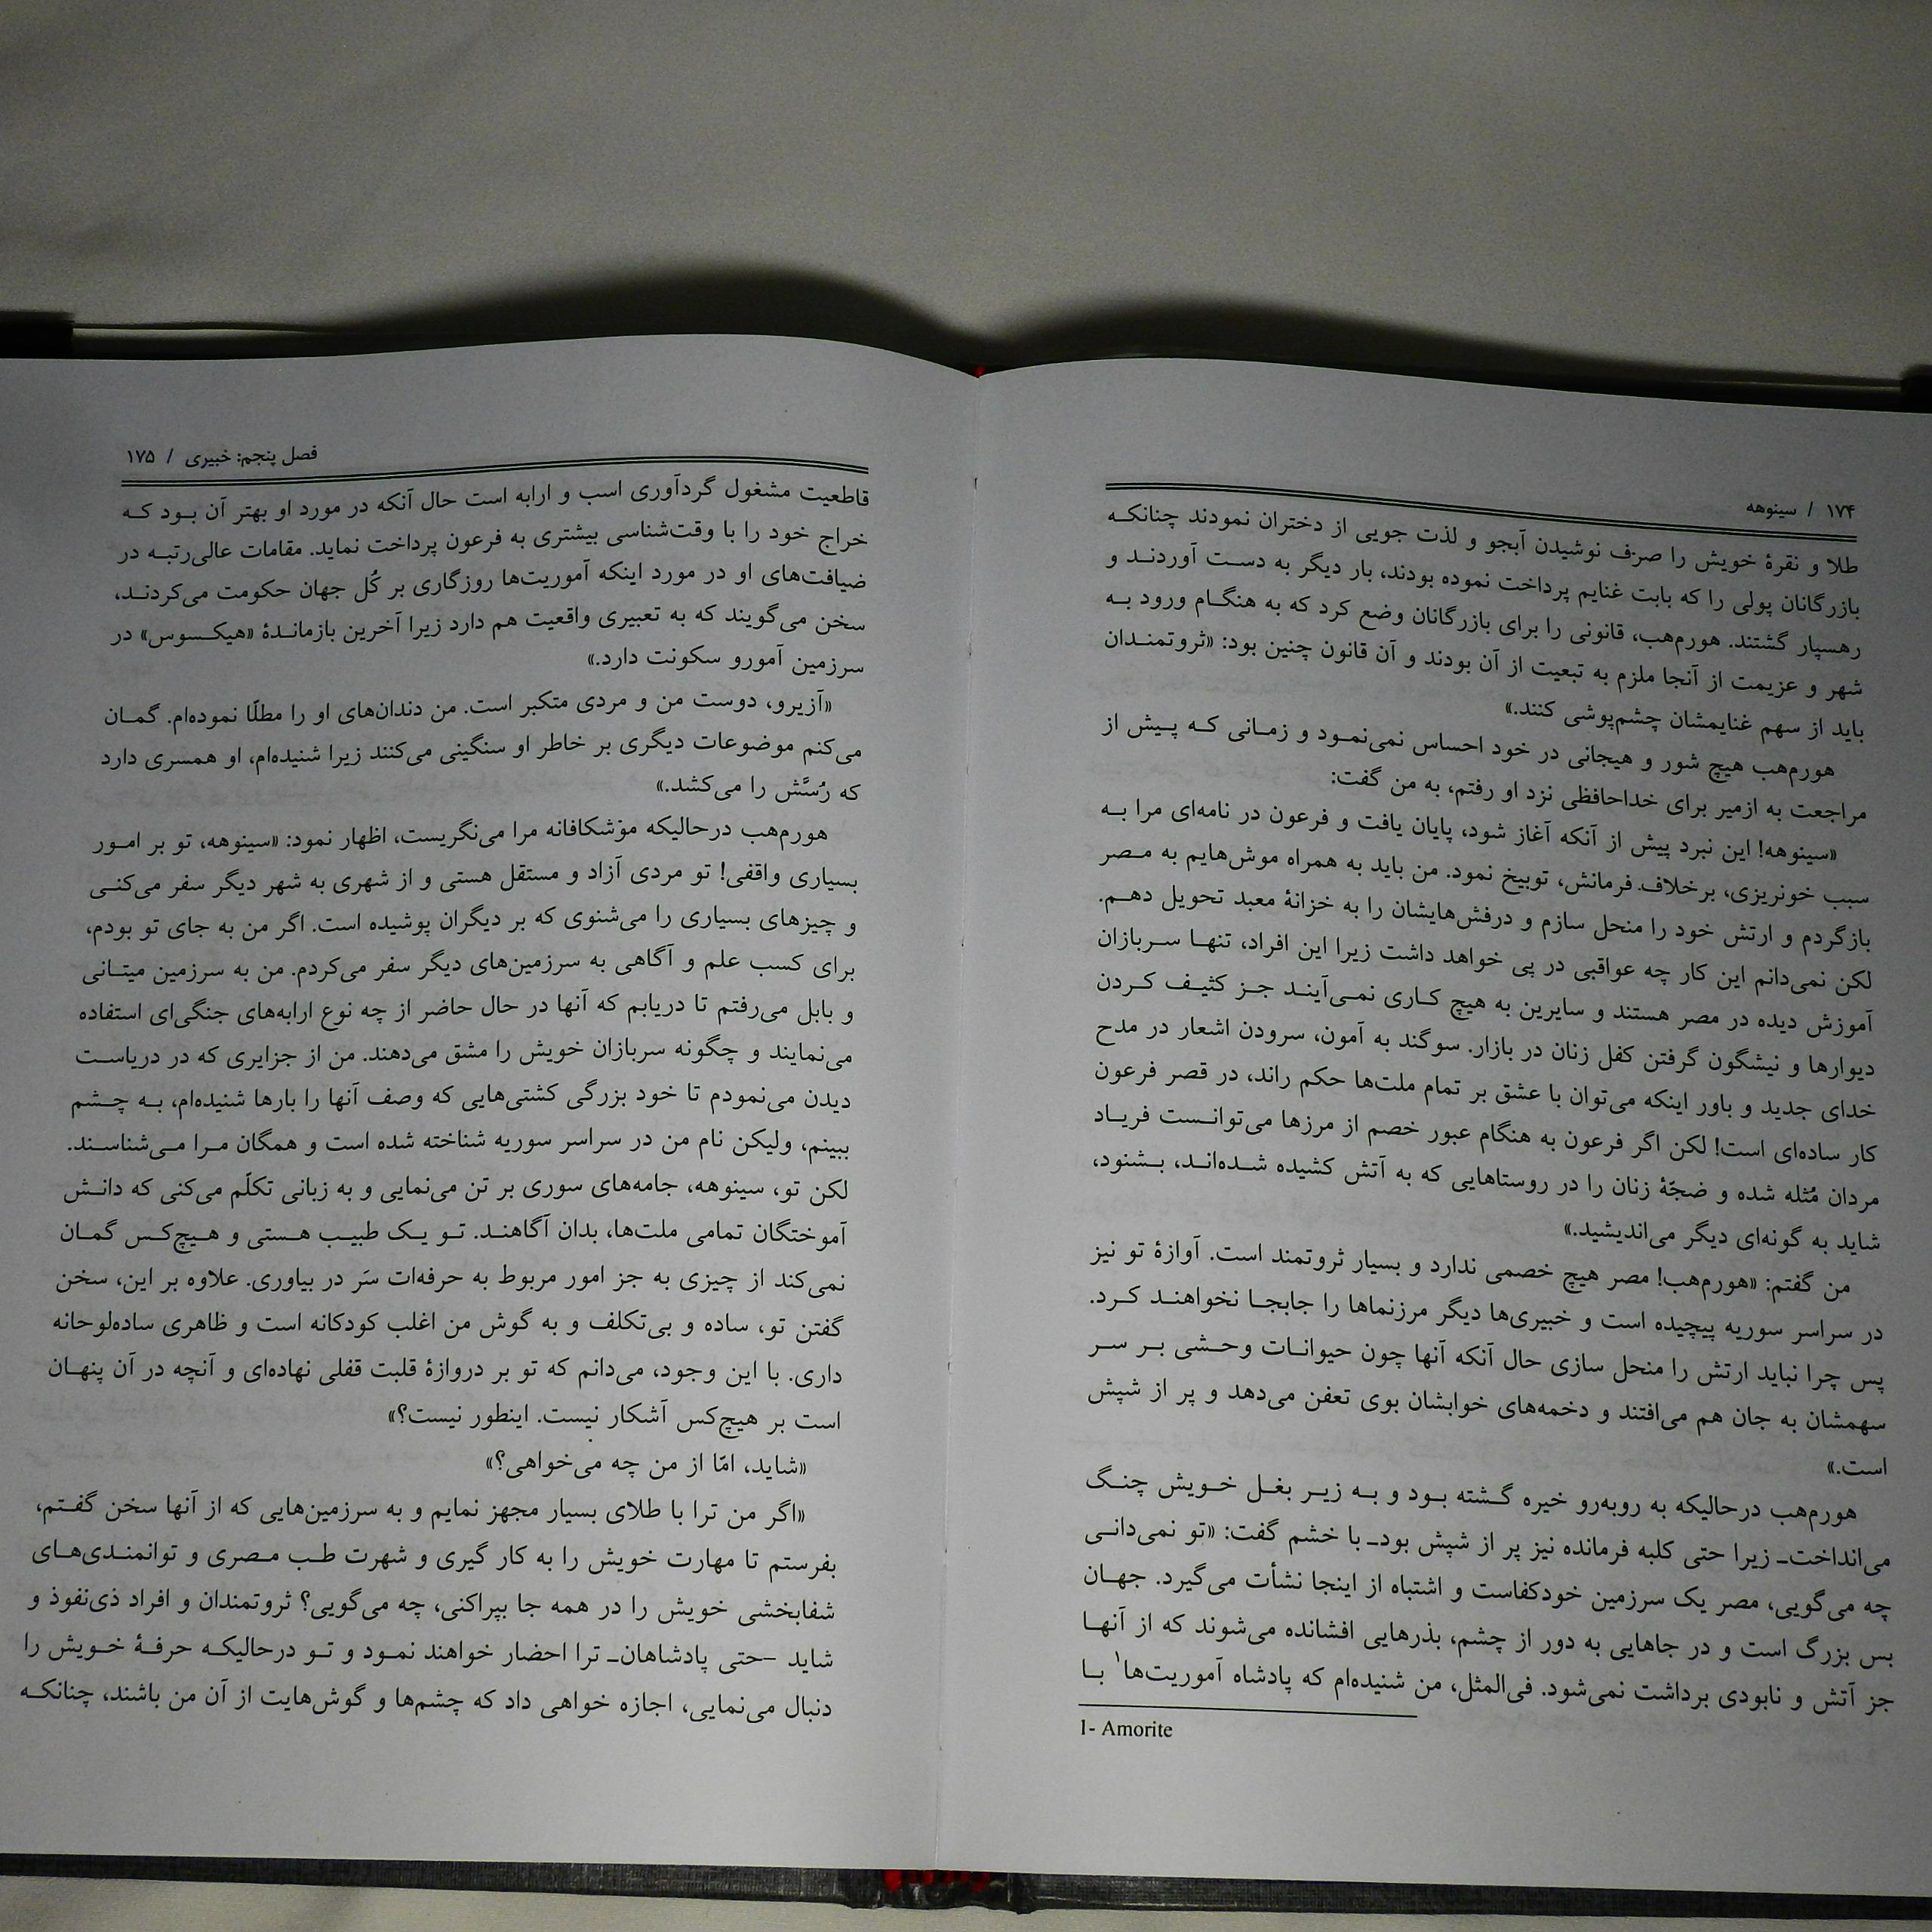 ۱۷۴ / سینوهه
طلا و نقرهٔ خویش را صرف نوشیدن آبجو و لذت جویی از دختران نمودند چنانکه
بازرگانان پولی را که بابت غنایم پرداخت نموده بودند، بار دیگر به دست آوردند و
رهسپار گشتند. هورم‌هب، قانونی را برای بازرگانان وضع کرد که به هنگام ورود به
شهر و عزیمت از آنجا ملزم به تبعیت از آن بودند و آن قانون چنین بود: «ثروتمندان
باید از سهم غنایمشان چشم‌پوشی کنند.»
هورم‌هب هیچ شور و هیجانی در خود احساس نمی‌نمود و زمانی که پیش از
مراجعت به ازمیر برای خداحافظی نزد او رفتم، به من گفت:
«سینوهه! این نبرد پیش از آنکه آغاز شود، پایان یافت و فرعون در نامه‌ای مرا به
سبب خونریزی، برخلاف فرمانش، توبیخ نمود. من باید به همراه موش‌هایم به مصر
بازگردم و ارتش خود را منحل سازم و درفش‌هایشان را به خزانهٔ معبد تحویل دهم.
لکن نمی‌دانم این کار چه عواقبی در پی خواهد داشت زیرا این افراد، تنها سربازان
آموزش دیده در مصر هستند و سایرین به هیچ کاری نمی‌آیند جز کثیف کردن
دیوارها و نیشگون گرفتن کفل زنان در بازار. سوگند به آمون، سرودن اشعار در مدح
خدای جدید و باور اینکه می‌توان با عشق بر تمام ملت‌ها حکم راند، در قصر فرعون
کار ساده‌ای است! لکن اگر فرعون به هنگام عبور خصم از مرزها می‌توانست فریاد
مردان مُثله شده و ضجّهٔ زنان را در روستاهایی که به آتش کشیده شده‌اند، بشنود،
شاید به گونه‌ای دیگر می‌اندیشید.»
من گفتم: «هورم‌هب! مصر هیچ خصمی ندارد و بسیار ثروتمند است. آوازهٔ تو نیز
در سراسر سوریه پیچیده است و خبیری‌ها دیگر مرزنماها را جابجا نخواهند کرد.
پس چرا نباید ارتش را منحل سازی حال آنکه آنها چون حیوانات وحشی بر سر
سهمشان به جان هم می‌افتند و دخمه‌های خوابشان بوی تعفن می‌دهد و پر از شپش
است.»
هورم‌هب درحالیکه به روبه‌رو خیره گشته بود و به زیر بغل خویش چنگ
می‌انداخت_ زیرا حتی کلبه فرمانده نیز پر از شپش بود_ با خشم گفت: «تو نمی‌دانی
چه می‌گویی، مصر یک سرزمین خودکفاست و اشتباه از اینجا نشأت می‌گیرد. جهان
بس بزرگ است و در جاهایی به دور از چشم، بذرهایی افشانده می‌شوند که از آنها
جز آتش و نابودی برداشت نمی‌شود. فی‌المثل، من شنیده‌ام که پادشاه آموریت‌ها¹ با
1- Amorite
فصل پنجم: خبیری / ۱۷۵
قاطعیت مشغول گردآوری اسب و ارابه است حال آنکه در مورد او بهتر آن بود که
خراج خود را با وقت‌شناسی بیشتری به فرعون پرداخت نماید. مقامات عالی‌رتبه در
ضیافت‌های او در مورد اینکه آموریت‌ها روزگاری بر کُل جهان حکومت می‌کردند،
سخن می‌گویند که به تعبیری واقعیت هم دارد زیرا آخرین بازماندهٔ «هیکسوس» در
سرزمین آمورو سکونت دارد.»
«آزیرو، دوست من و مردی متکبر است. من دندان‌های او را مطلّا نموده‌ام. گمان
می‌کنم موضوعات دیگری بر خاطر او سنگینی می‌کنند زیرا شنیده‌ام، او همسری دارد
که رُسَّش را می‌کشد.»
هورم‌هب درحالیکه موشکافانه مرا می‌نگریست، اظهار نمود: «سینوهه، تو بر امور
بسیاری واقفی! تو مردی آزاد و مستقل هستی و از شهری به شهر دیگر سفر می‌کنی
و چیزهای بسیاری را می‌شنوی که بر دیگران پوشیده است. اگر من به جای تو بودم،
برای کسب علم و آگاهی به سرزمین‌های دیگر سفر می‌کردم. من به سرزمین میتانی
و بابل می‌رفتم تا دریابم که آنها در حال حاضر از چه نوع ارابه‌های جنگی‌ای استفاده
می‌نمایند و چگونه سربازان خویش را مشق می‌دهند. من از جزایری که در دریاست
دیدن می‌نمودم تا خود بزرگی کشتی‌هایی که وصف آنها را بارها شنیده‌ام، به چشم
ببینم، ولیکن نام من در سراسر سوریه شناخته شده است و همگان مرا می‌شناسند.
لکن تو، سینوهه، جامه‌های سوری بر تن می‌نمایی و به زبانی تکلّم می‌کنی که دانش
آموختگان تمامی ملت‌ها، بدان آگاهند. تو یک طبیب هستی و هیچ‌کس گمان
نمی‌کند از چیزی به جز امور مربوط به حرفه‌ات سَر در بیاوری. علاوه بر این، سخن
گفتن تو، ساده و بی‌تکلف و به گوش من اغلب کودکانه است و ظاهری ساده‌لوحانه
داری. با این وجود، می‌دانم که تو بر دروازهٔ قلبت قفلی نهاده‌ای و آنچه در آن پنهان
است بر هیچ‌کس آشکار نیست. اینطور نیست؟»
«شاید، امّا از من چه می‌خواهی؟»
«اگر من ترا با طلای بسیار مجهز نمایم و به سرزمین‌هایی که از آنها سخن گفتم،
بفرستم تا مهارت خویش را به کار گیری و شهرت طب مصری و توانمندی‌های
شفابخشی خویش را در همه جا بپراکنی، چه می‌گویی؟ ثروتمندان و افراد ذی‌نفوذ و
شاید –حتی پادشاهان_ ترا احضار خواهند نمود و تو درحالیکه حرفهٔ خویش را
دنبال می‌نمایی، اجازه خواهی داد که چشم‌ها و گوش‌هایت از آن من باشند، چنانکه